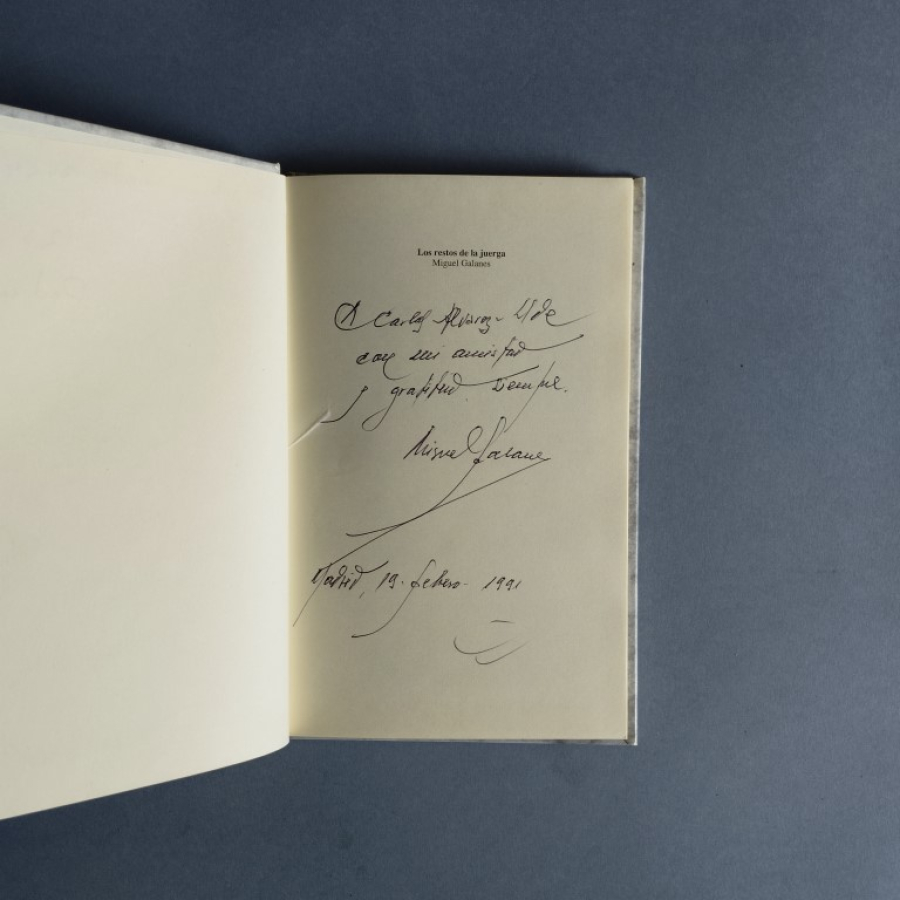 Los restos de la juerga
Miguel Galanes
A Carlos Alvarez-Ude
con mi amistad
y gratitud siempre.
Miguel Galanes
Madrid, 19. febrero - 1991